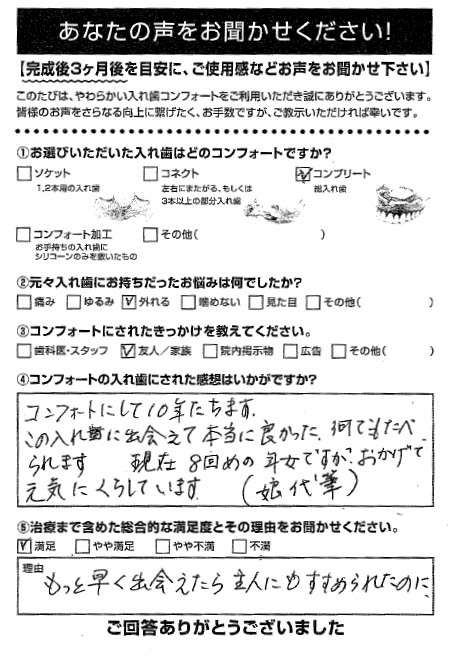 あなたの声をお聞かせください!
【完成後3ヶ月後を目安に、ご使用感などお声をお聞かせ下さい】
このたびは、やわらかい入れ歯コンフォートをご利用いただき誠にありがとうございます。
皆様のお声をさらなる向上に繋げたく、お手数ですが、ご教示いただければ幸いです。
①お選びいただいた入れ歯はどのコンフォートですか?
□ソケット □コネクト ☑コンプリート
1,2本用の入れ歯 左右にまたがる、もしくは 総入れ歯
3本以上の部分入れ歯
□コンフォート加工 □その他( )
お手持ちの入れ歯に
シリコーンのみを敷いたもの
②元々入れ歯にお持ちだったお悩みは何でしたか?
□痛み □ゆるみ ☑外れる □噛めない □見た目 □その他( )
③コンフォートにされたきっかけを教えてください。
□歯科医・スタッフ ☑友人/家族 □院内掲示物 □広告 □その他( )
④コンフォートの入れ歯にされた感想はいかがですか?
コンフォートにして10年たちます.
この入れ歯に出会えて本当に良かった. 何でもたべ
られます 現在 8回めの年女ですが、おかげで
元気にくらしています. (娘代筆)
⑤治療まで含めた総合的な満足度とその理由をお聞かせください。
☑満足 □やや満足 □やや不満 □不満
理由
もっと早く出会えたら主人にもすすめられたのに.
ご回答ありがとうございました